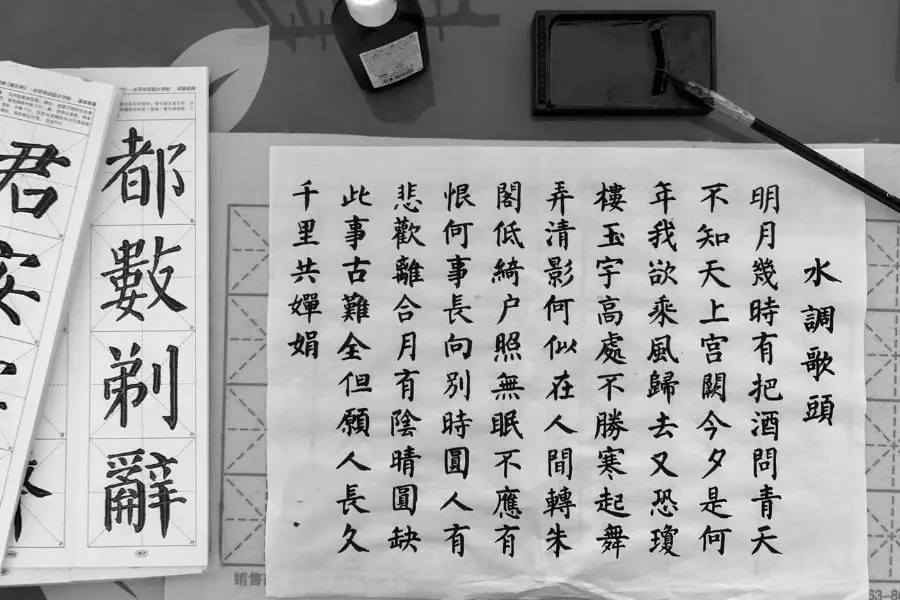 水調歌頭
明月幾時有把酒問青天
不知天上宮闕今夕是何
年我欲乘風歸去又恐瓊
樓玉宇高處不勝寒起舞
弄清影何似在人間轉朱
閣低綺户照無眠不應有
恨何事長向别時圓人有
悲歡離合月有陰晴圓缺
此事古難全但願人長久
千里共嬋娟
都數剃辭
君安
销售